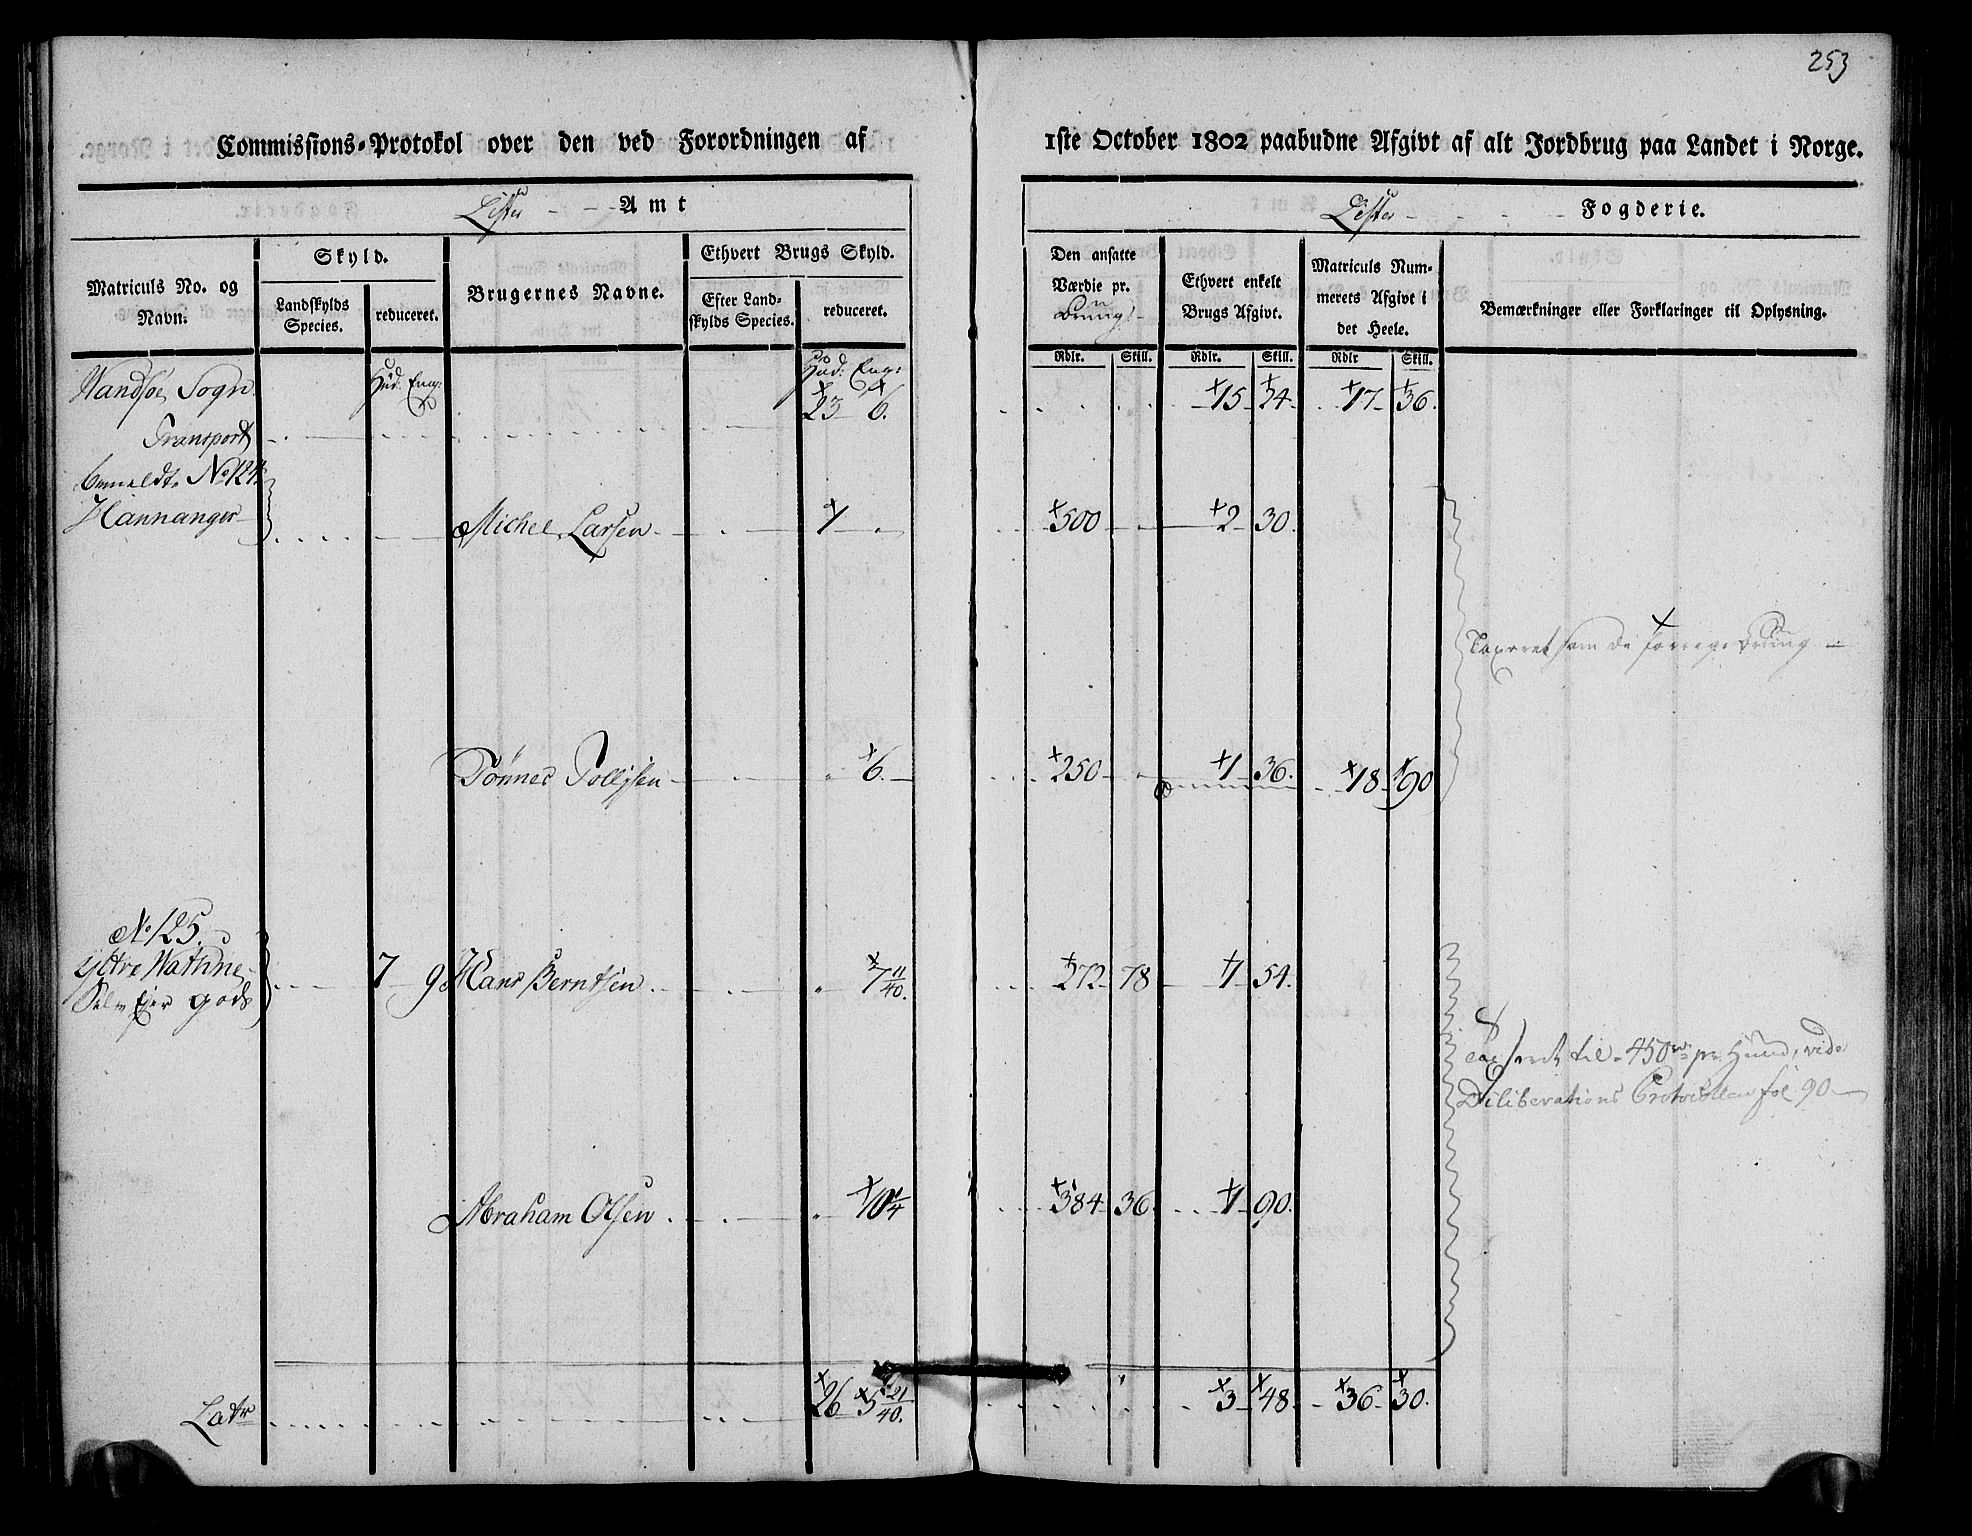 253
Commissions-Protokol over den ved Forordningen af 1ste October 1802 paabudne Afgivt af alt Jordbrug paa Landet i Norge.
Lister - - - Amt
Lister - - - Fogderie.
Matriculs No. og Navn.
Skyld.
Landskylds Species.
reduceret.
Brugernes Navne.
Ethvert Brugs Skyld.
Efter Landskylds Species.
reduceret.
Den ansatte Værdie pr.
Ethvert enkelt Brugs Afgivt.
Matriculs Nummerets Afgivt i det Heele.
Bemærkninger eller Forklaringer til Oplysning.
Rdlr. Skill. Rdlr. Skill. Rdlr Skill.
Hud: Eng:
Hud: Eng:
Wandsøe Sogn 23 6. 15 24 17 36.
Transport
bemeldte No 124
Hannanger Michel Larsen 1 500 2 30.
Taxeret som de forrige Brug
Tønnes Tollisen 6. 250 1 36. 18 90
No 125.
Yttre Wathne 7 9 Hans Berntsen 7 11/40. 272 78 1 54.
Selv Ejer gods
Taxeret til 450 rd pr Huud, vide
Deliberations Protocollen fol 90
Abraham Olsen 10 1/4 384 36 1 90.
Latr 26 5 21/40. 3 48 36 30.